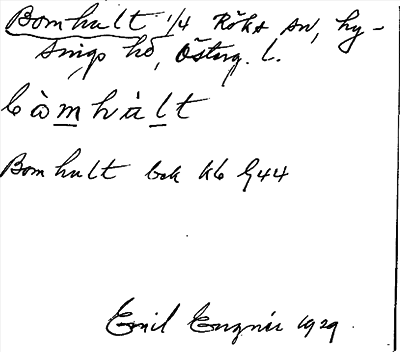 Bomhult 1/4 Röks sn, Ly-
sings hd, Österg. l.
bòmhùlt
Bomhult bok Kb G44
Emil Engnér 1929.